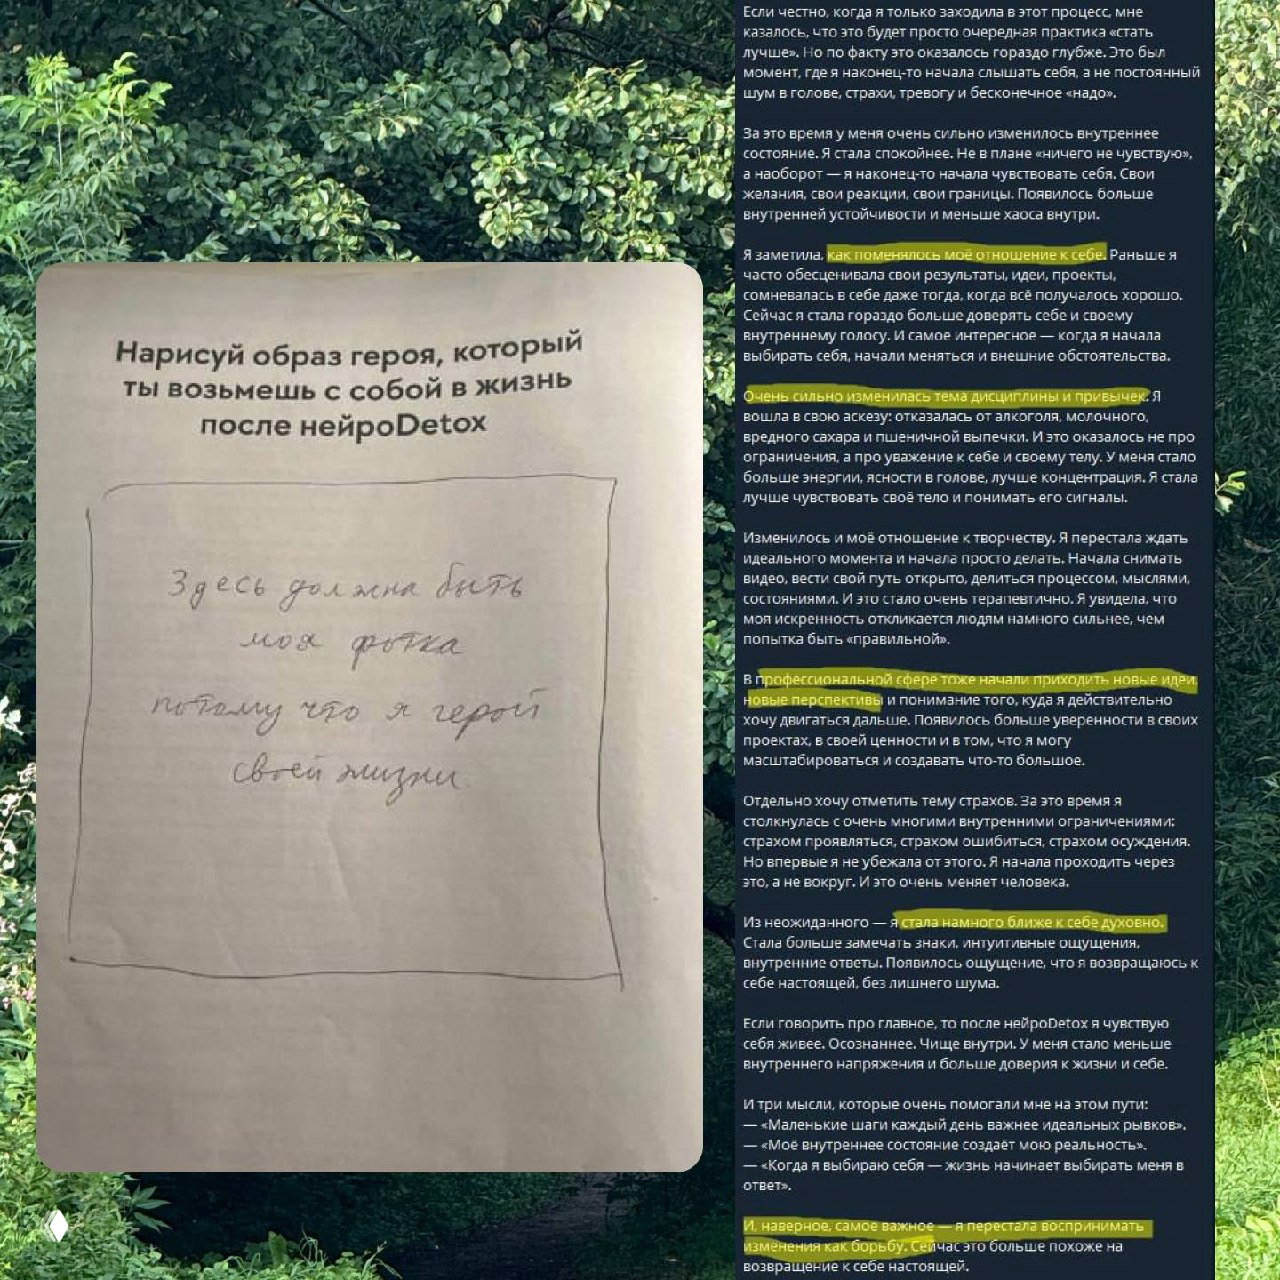 Нарисуй образ героя, который
ты возьмешь с собой в жизнь
после нейроDetox
Здесь должна быть
моя фотка
потому что я герой
своей жизни
Если честно, когда я только заходила в этот процесс, мне
казалось, что это будет просто очередная практика «стать
лучше». Но по факту это оказалось гораздо глубже. Это был
момент, где я наконец-то начала слышать себя, а не постоянный
шум в голове, страхи, тревогу и бесконечное «надо».
За это время у меня очень сильно изменилось внутреннее
состояние. Я стала спокойнее. Не в плане «ничего не чувствую»,
а наоборот — я наконец-то начала чувствовать себя. Свои
желания, свои реакции, свои границы. Появилось больше
внутренней устойчивости и меньше хаоса внутри.
Я заметила, как поменялось моё отношение к себе. Раньше я
часто обесценивала свои результаты, идеи, проекты,
сомневалась в себе даже тогда, когда всё получалось хорошо.
Сейчас я стала гораздо больше доверять себе и своему
внутреннему голосу. И самое интересное — когда я начала
выбирать себя, начали меняться и внешние обстоятельства.
Очень сильно изменилась тема дисциплины и привычек. Я
вошла в свою аскезу: отказалась от алкоголя, молочного,
вредного сахара и пшеничной выпечки. И это оказалось не про
ограничения, а про уважение к себе и своему телу. У меня стало
больше энергии, ясности в голове, лучше концентрация. Я стала
лучше чувствовать своё тело и понимать его сигналы.
Изменилось и моё отношение к творчеству. Я перестала ждать
идеального момента и начала просто делать. Начала снимать
видео, вести свой путь открыто, делиться процессом, мыслями,
состояниями. И это стало очень терапевтично. Я увидела, что
моя искренность откликается людям намного сильнее, чем
попытка быть «правильной».
В профессиональной сфере тоже начали приходить новые идеи,
новые перспективы и понимание того, куда я действительно
хочу двигаться дальше. Появилось больше уверенности в своих
проектах, в своей ценности и в том, что я могу
масштабироваться и создавать что-то большое.
Отдельно хочу отметить тему страхов. За это время я
столкнулась с очень многими внутренними ограничениями:
страхом проявляться, страхом ошибиться, страхом осуждения.
Но впервые я не убежала от этого. Я начала проходить через
это, а не вокруг. И это очень меняет человека.
Из неожиданного — я стала намного ближе к себе духовно.
Стала больше замечать знаки, интуитивные ощущения,
внутренние ответы. Появилось ощущение, что я возвращаюсь к
себе настоящей, без лишнего шума.
Если говорить про главное, то после нейроDetox я чувствую
себя живее. Осознаннее. Чище внутри. У меня стало меньше
внутреннего напряжения и больше доверия к жизни и себе.
И три мысли, которые очень помогали мне на этом пути:
— «Маленькие шаги каждый день важнее идеальных рывков».
— «Моё внутреннее состояние создаёт мою реальность».
— «Когда я выбираю себя — жизнь начинает выбирать меня в
ответ».
И, наверное, самое важное — я перестала воспринимать
изменения как борьбу. Сейчас это больше похоже на
возвращение к себе настоящей.